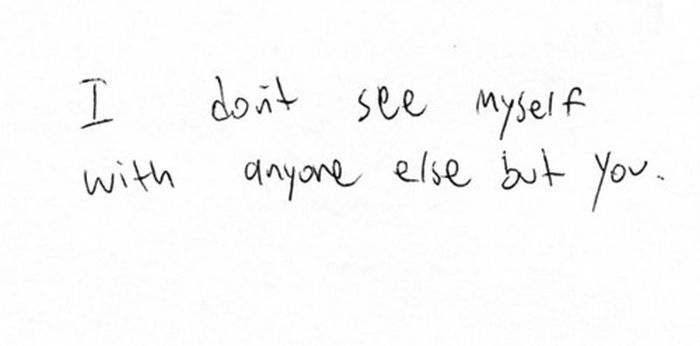 I don't see myself
with anyone else but you.